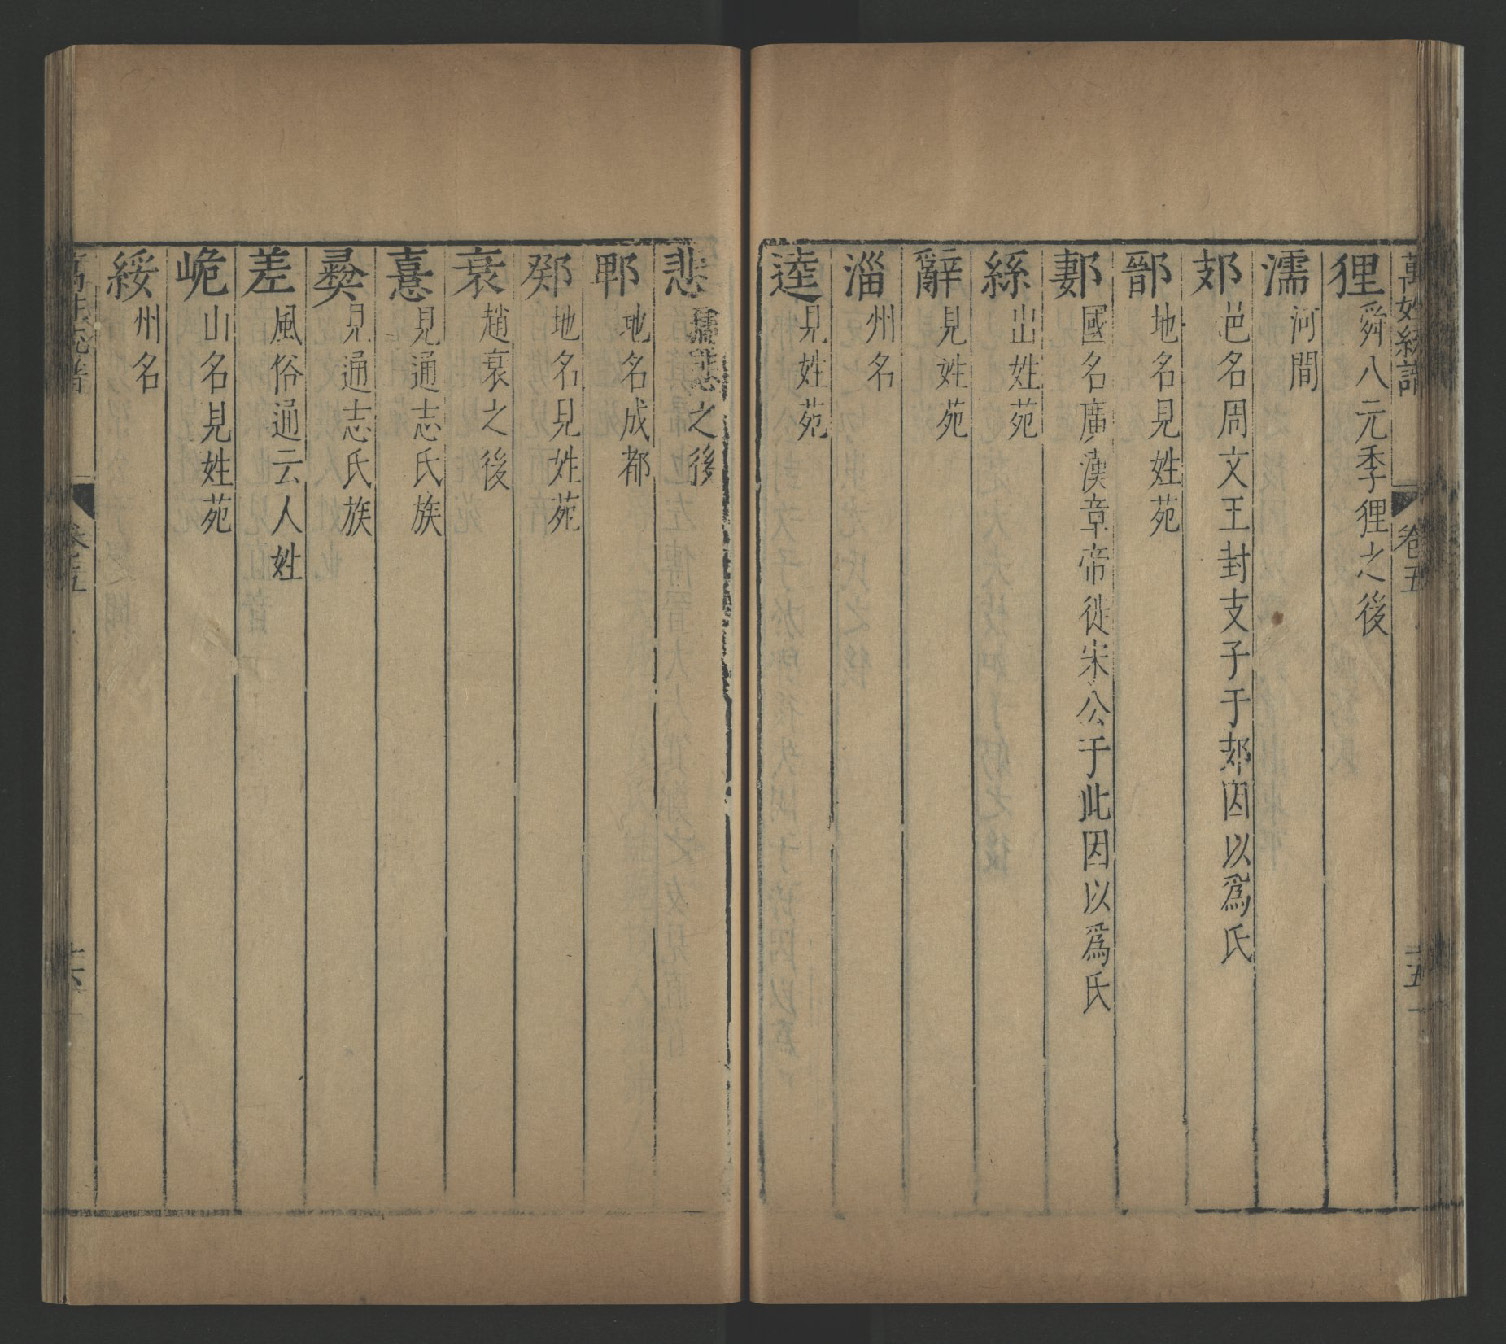 萬姓統譜 卷五 十五
狸 舜八元季狸之後
濡 河間
𨙸 邑名周文王封支子于𨙸因以爲氏
鄑 地名見姓苑
郪 國名廣漢章帝徙宋公于此因以爲氏
絲 出姓苑
辭 見姓苑
淄 州名
逵 見姓苑
悲 孺悲之後
郫 地名成都
鄈 地名見姓苑
衰 趙衰之後
憙 見通志氏族
彛 見通志氏族
差 風俗通云人姓
峗 山名見姓苑
綏 州名
萬姓統譜 卷之五 十六